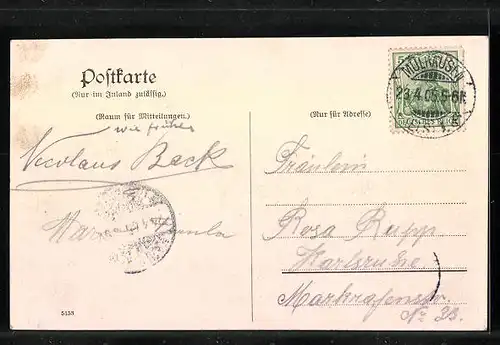 Postkarte
(Nur im Inland zulässig.)
(Raum für Mitteilungen.)
wie früher
Nicolaus Beck
(Nur für Adresse)
MÜLHAUSEN
23.4.05.5-6N.
DEUTSCHES REICH
Fräulein
Rosa Rupp
Karlsruhe
Markgrafenstr.
No 23.
5158